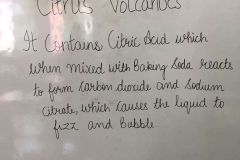 Citrus Volcanoes
It Contains Citric Acid which
when mixed with Baking Soda reacts
to form Carbon dioxide and Sodium
Citrate, which causes the liquid to
fizz and bubble.